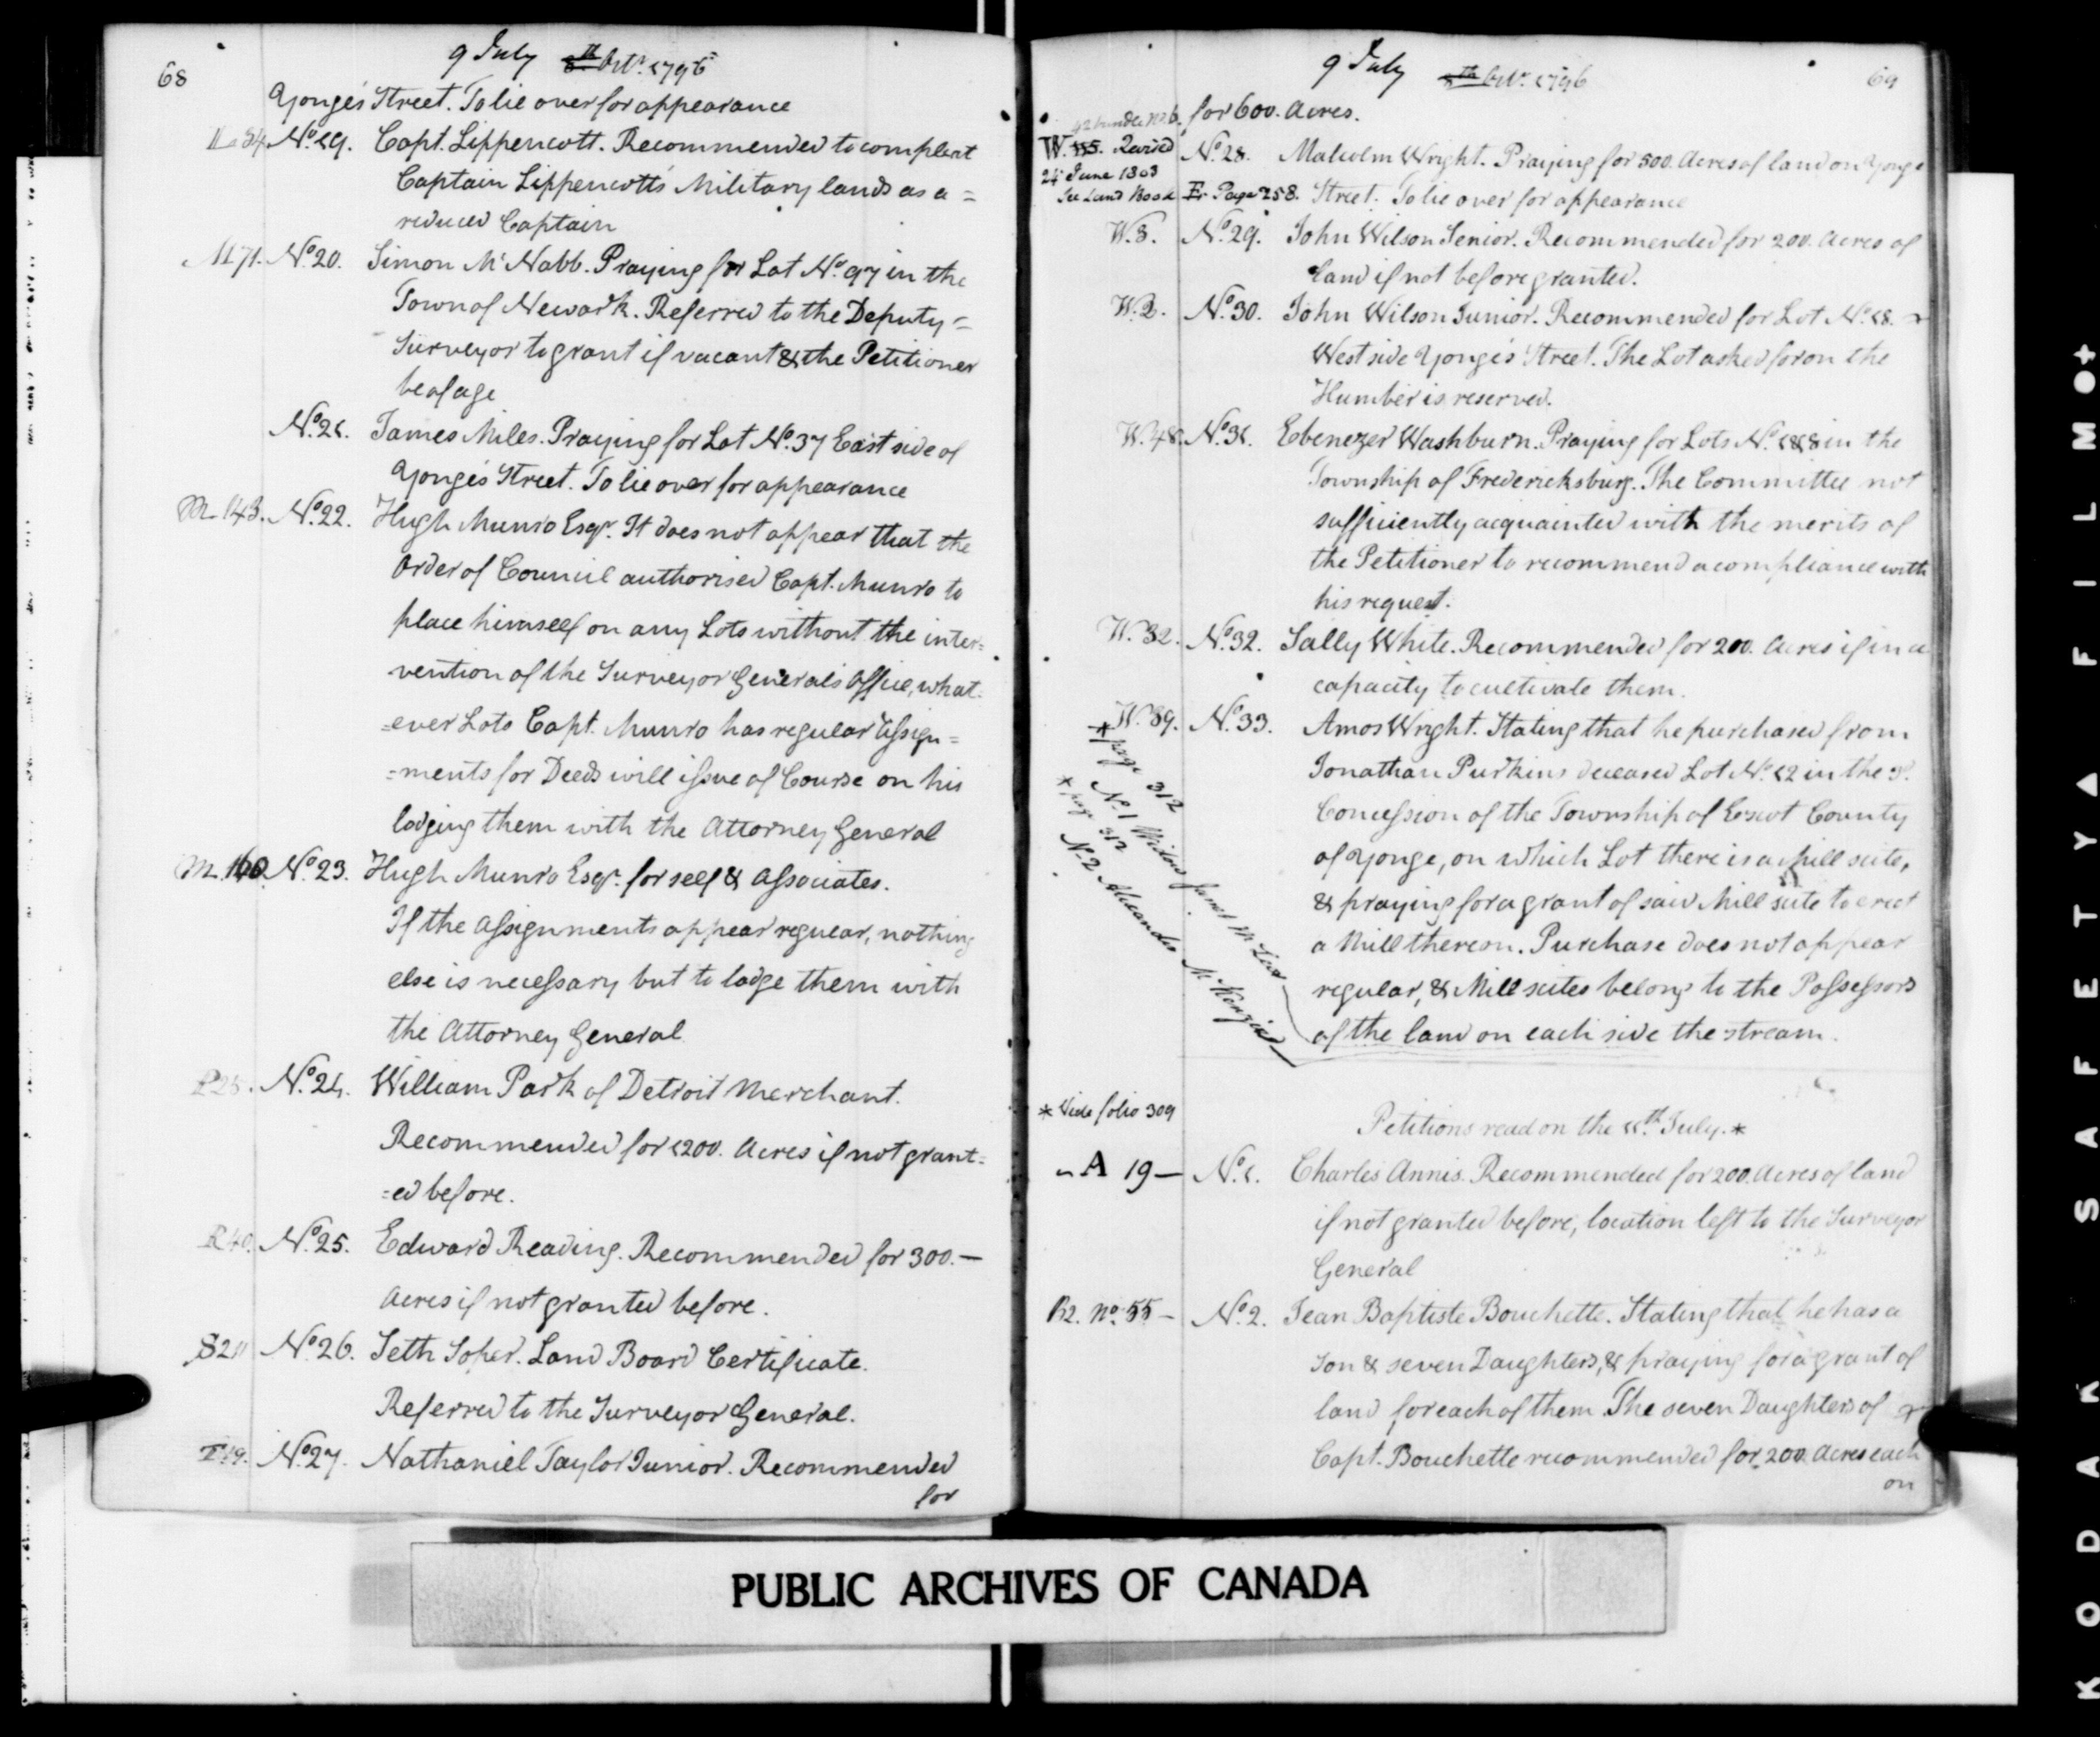 68
9 July 8th Octr. 1796
Yonge's Street. To lie over for appearance
L 34. No. 19. Capt. Lippencott. Recommended to compleat
Captain Lippencott's Military lands as a =
reduced Captain
M 71. No. 20. Simon McNabb. Praying for Lot No. 97 in the
Town of Newark. Referred to the Deputy =
Surveyor to grant if vacant & the Petitioner
be of age
No. 21. James Miles. Praying for Lot No. 37 East side of
Yonge's Street. To lie over for appearance
M 143. No. 22. Hugh Munro Esqr. It does not appear that the
Order of Council authorised Capt. Munro to
place himself on any Lots without the inter=
vention of the Surveyor General's Office, what-
=ever Lots Capt. Munro has regular Assign=
=ments for Deeds will issue of Course on his
lodging them with the Attorney General
M. 160. No. 23. Hugh Munro Esqr. for self & Associates.
If the Assignments appear regular, nothing
else is necessary but to lodge them with
the Attorney General
P 25. No. 24. William Park of Detroit Merchant.
Recommended for 1200. Acres if not grant=
=ed before.
R 40. No. 25. Edward Reading. Recommended for 300.—
Acres if not granted before.
S 211 No. 26. Seth Soper. Land Board Certificate.
Referred to the Surveyor General.
T 19. No. 27. Nathaniel Taylor Junior. Recommended
for
9 July 8th Octr. 1796
69
for 600. Acres.
42 bundle No. 6.
W. 155. Revised No. 28. Malcolm Wright. Praying for 500. Acres of land on Yonge
24 June 1803
See Land Book E. Page 258. Street. To lie over for appearance
W. 8. No. 29. John Wilson Senior. Recommended for 200. Acres of
land if not before granted.
W. 2. No. 30. John Wilson Junior. Recommended for Lot No. 18.
West side Yonge's Street. The Lot asked for on the
Humber is reserved.
W. 48. No. 31. Ebenezer Washburn. Praying for Lots No. in the
Township of Fredericksburg. The Committee not
sufficiently acquainted with the merits of
the Petitioner to recommend a compliance with
his request.
W. 32. No. 32. Sally White. Recommended for 200. Acres if in a
capacity to cultivate them.
W. 39. No. 33. Amos Wright. Stating that he purchased from
Jonathan Purkins deceased Lot No. 12 in the
Concession of the Township of Escot County
of Yonge, on which Lot there is a Mill seite,
& praying for a grant of said Mill seite to erect
a Mill thereon. Purchase does not appear
regular, & Mill seites belong to the Possessors
of the land on each side the stream.
* page 312
No. 1 Widow Janet
* page 312
No. 2 Alexander McKenzie
* Vide folio 309
Petitions read on the 11th. July. *
A 19 — No. 1. Charles Annis. Recommended for 200. Acres of land
if not granted before, location left to the Surveyor
General
B2. No. 55 — No. 2. Jean Baptiste Bouchette. Stating that he has a
Son & seven Daughters, & praying for a grant of
land for each of them. The seven Daughters of
Capt. Bouchette recommended for 200 Acres each
on
PUBLIC ARCHIVES OF CANADA
KODAK SAFETY▲FILM●+